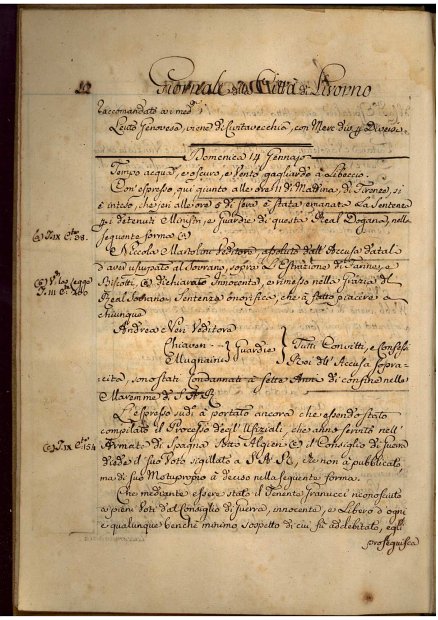 12 Giornale della Città di Livorno
raccomandato ai med.mi
Leuto Genovese, viene di Civitavecchia, con Merc. di
Domenica 14 Gennajo
Tempo acqua, e oscuro, e vento gagliardo a Libeccio.
Con espresso qui giunto alle ore 11 di Mattina, di Firenze, si
è inteso, che jeri alle ore 5 di sera è stata emanata la Sentenza
pi detenuti Ministri, e Guardie di questa Real Dogana, nella
seguente forma (a)
(a) T. IX
Niccola Martolini Veditore assoluto dall'Accusa datali
d'aver usurpato al Sovrano, sopra l'Estrazione di Farina, e
Biscotti, (b) dichiarato Innocente, e rimesso nella Grazia del
(b) V. la legge
T. III
Real Sovrano Sentenza onorifica, che à fatto piacere a
chiunque
Andrea Neri Veditore
Chiavon
Mugnaini } Guardie } Tutti Convitti, e Confessi
Rei dell'Accusa sopra-
cita, sono stati Condannati a sette Anni di confino nelle
Maremme di S.A.R.
L'espresso sud.o à portato ancora che essendo stato
compilato il Processo degl'Ufiziali, che anno servito nell'
Armata di Spagna Algieri (c) il Consiglio di Guerra
(c) T. IX
diede il suo Voto sigillato a S.A.R., che non à pubblicato
ma di suo Motuproprio à deciso nella seguente forma.
Che mediante essere stato il Tenente Franucci riconosciuto
a pieni Voti dal Consiglio di Guerra, innocente, e Libero d'ogni
e qualunque benchè minimo sospetto di cui fù addebitato, egli
proseguisca